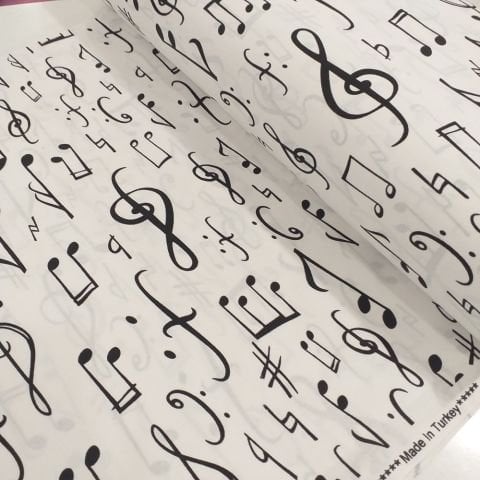 **** Made in Turkey *****